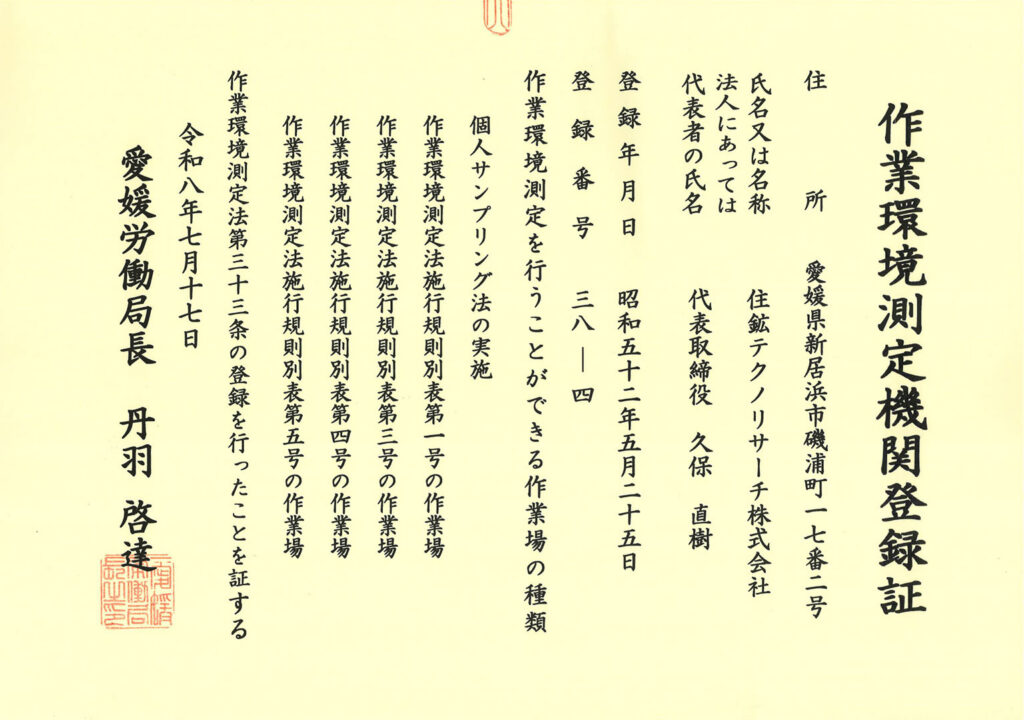 作業環境測定機関登録証
住所　愛媛県新居浜市磯浦町一七番二号
氏名又は名称　住鉱テクノリサーチ株式会社
法人にあっては
代表者の氏名　代表取締役　久保　直樹
登録年月日　昭和五十二年五月二十五日
登録番号　三八―四
作業環境測定を行うことができる作業場の種類
個人サンプリング法の実施
作業環境測定法施行規則別表第一号の作業場
作業環境測定法施行規則別表第三号の作業場
作業環境測定法施行規則別表第四号の作業場
作業環境測定法施行規則別表第五号の作業場
作業環境測定法第三十三条の登録を行ったことを証する
令和八年七月十七日
愛媛労働局長　丹羽　啓達
愛媛労働局長之印